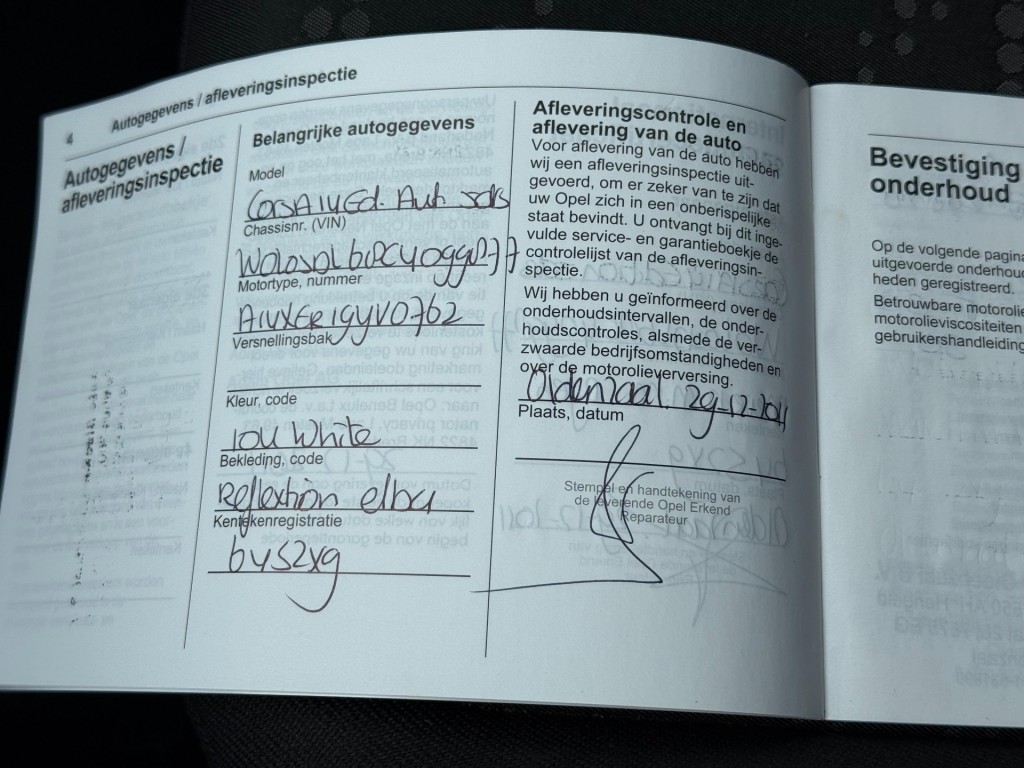 4
Autogegevens / afleveringsinspectie
Autogegevens /
afleveringsinspectie
Belangrijke autogegevens
Model
CorsA IV Ed. Aut
Chassisnr. (VIN)
Motortype, nummer
A14XER19YV0762
Versnellingsbak
Kleur, code
10U White
Bekleding, code
Reflextion elba
Kentekenregistratie
64S2xg
Afleveringscontrole en
aflevering van de auto
Voor aflevering van de auto hebben
wij een afleveringsinspectie uit-
gevoerd, om er zeker van te zijn dat
uw Opel zich in een onberispelijke
staat bevindt. U ontvangt bij dit inge-
vulde service- en garantieboekje de
controlelijst van de afleveringsin-
spectie.
Wij hebben u geïnformeerd over de
onderhoudsintervallen, de onder-
houdscontroles, alsmede de ver-
zwaarde bedrijfsomstandigheden en
over de motorolieverversing.
Oldenzaal. 29-12-2011
Plaats, datum
Stempel en handtekening van
de leverende Opel Erkend
Reparateur
Bevestiging
onderhoud
Op de volgende pagina
uitgevoerde onderhoud
heden geregistreerd.
Betrouwbare motorolie
motorolieviscositeiten
gebruikershandleiding